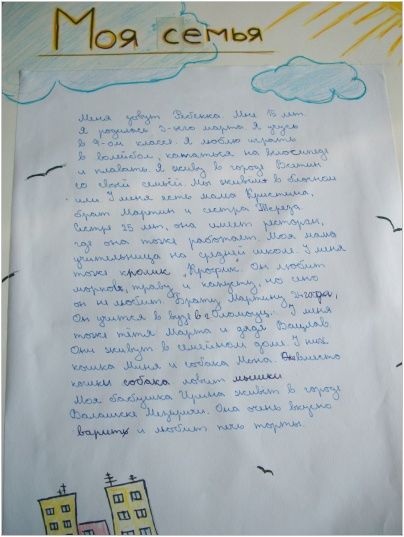 Моя семья
Меня зовут Ребенка. Мне 15 лет.
Я родилась 3-его марта. Я учусь
в 9-ом классе. Я люблю играть
в волейбол, кататься на велосипеде
и плавать. Я живу в городе Всетин
со своей семьёй. Мы живём в блочном
У меня есть мама Кристина,
брат Мартин и сестра Тереза.
Сестре 25 лет, она имеет ресторан,
где она тоже работает. Моя мама
учительница на средней школе. У меня
тоже кролик "Крофик". Он любит
морковь, траву и капусту, но сено
он не любит. Брату Мартину 21 года,
Он учится в вузе в г. Оломоуц. У меня
тоже тётя Марта и дядя Вацлав.
Они живут в семейном доме. У них
кошка Миня и собака Мона. Вместо
кошки собака ловит мышки
Моя бабушка Ирина живёт в городе
Валашске Мезиричи. Она очень вкусно
варить и любит печь торты.